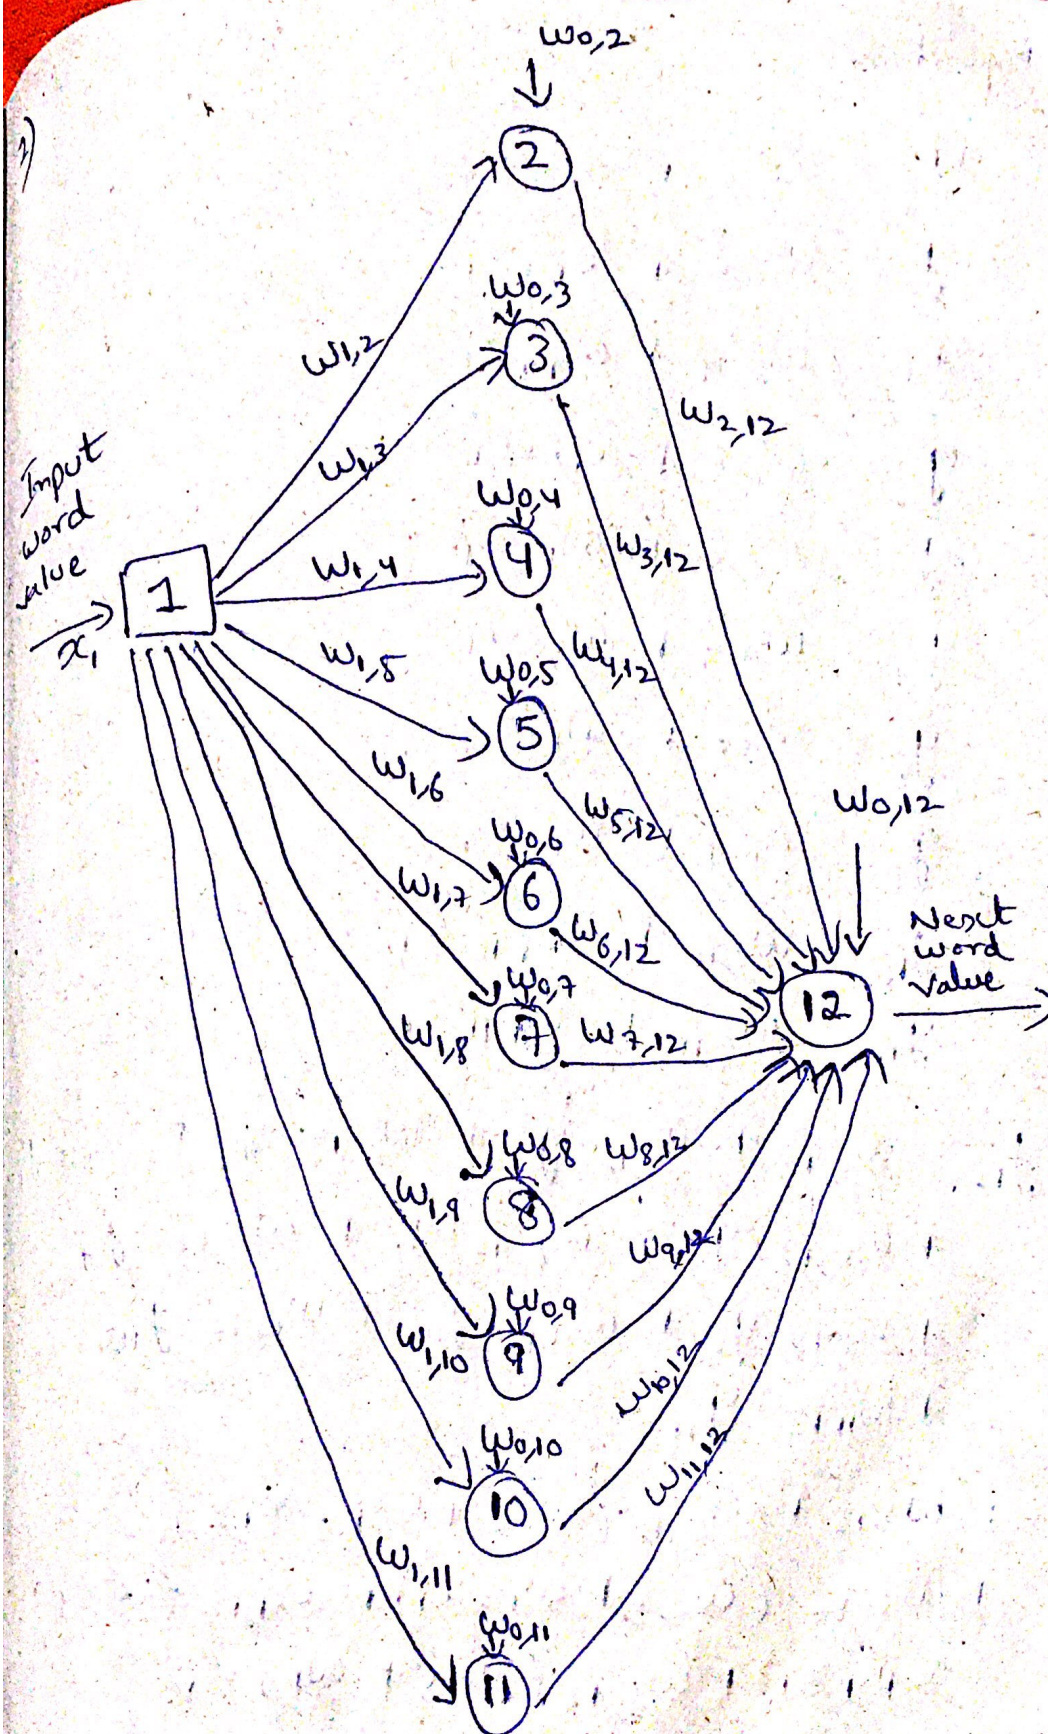 2)
w0,2
2
w0,3
3
w1,2
w1,3
w2,12
Input
word
value
x1
1
w0,4
4
w1,4
w3,12
w1,5
w0,5
5
w4,12
w1,6
w5,12
w0,12
w0,6
6
w1,7
w6,12
Next
word
value
12
w0,7
7
w1,8
w7,12
w0,8
8
w8,12
w1,9
w9,12
w0,9
9
w1,10
w10,12
w0,10
10
w11,12
w1,11
w0,11
11